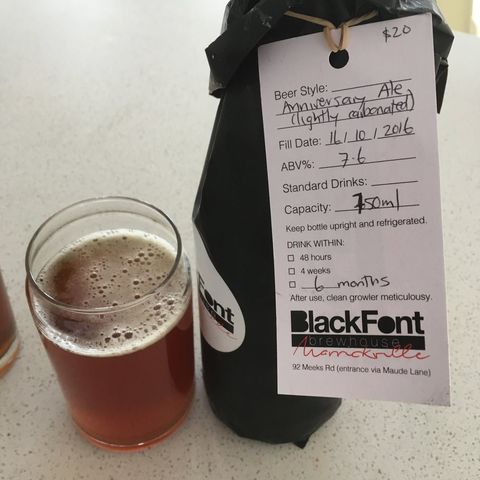 $20
Beer Style:
Anniversary Ale
(lightly carbonated)
Fill Date: 16/10/2016
ABV%: 7.6
Standard Drinks:
Capacity: 750ml
Keep bottle upright and refrigerated.
DRINK WITHIN:
48 hours
4 weeks
6 months
After use, clean growler meticulousy.
BlackFont
brewhouse
Marrickville
92 Meeks Rd (entrance via Maude Lane)
ckFont
ewhouse